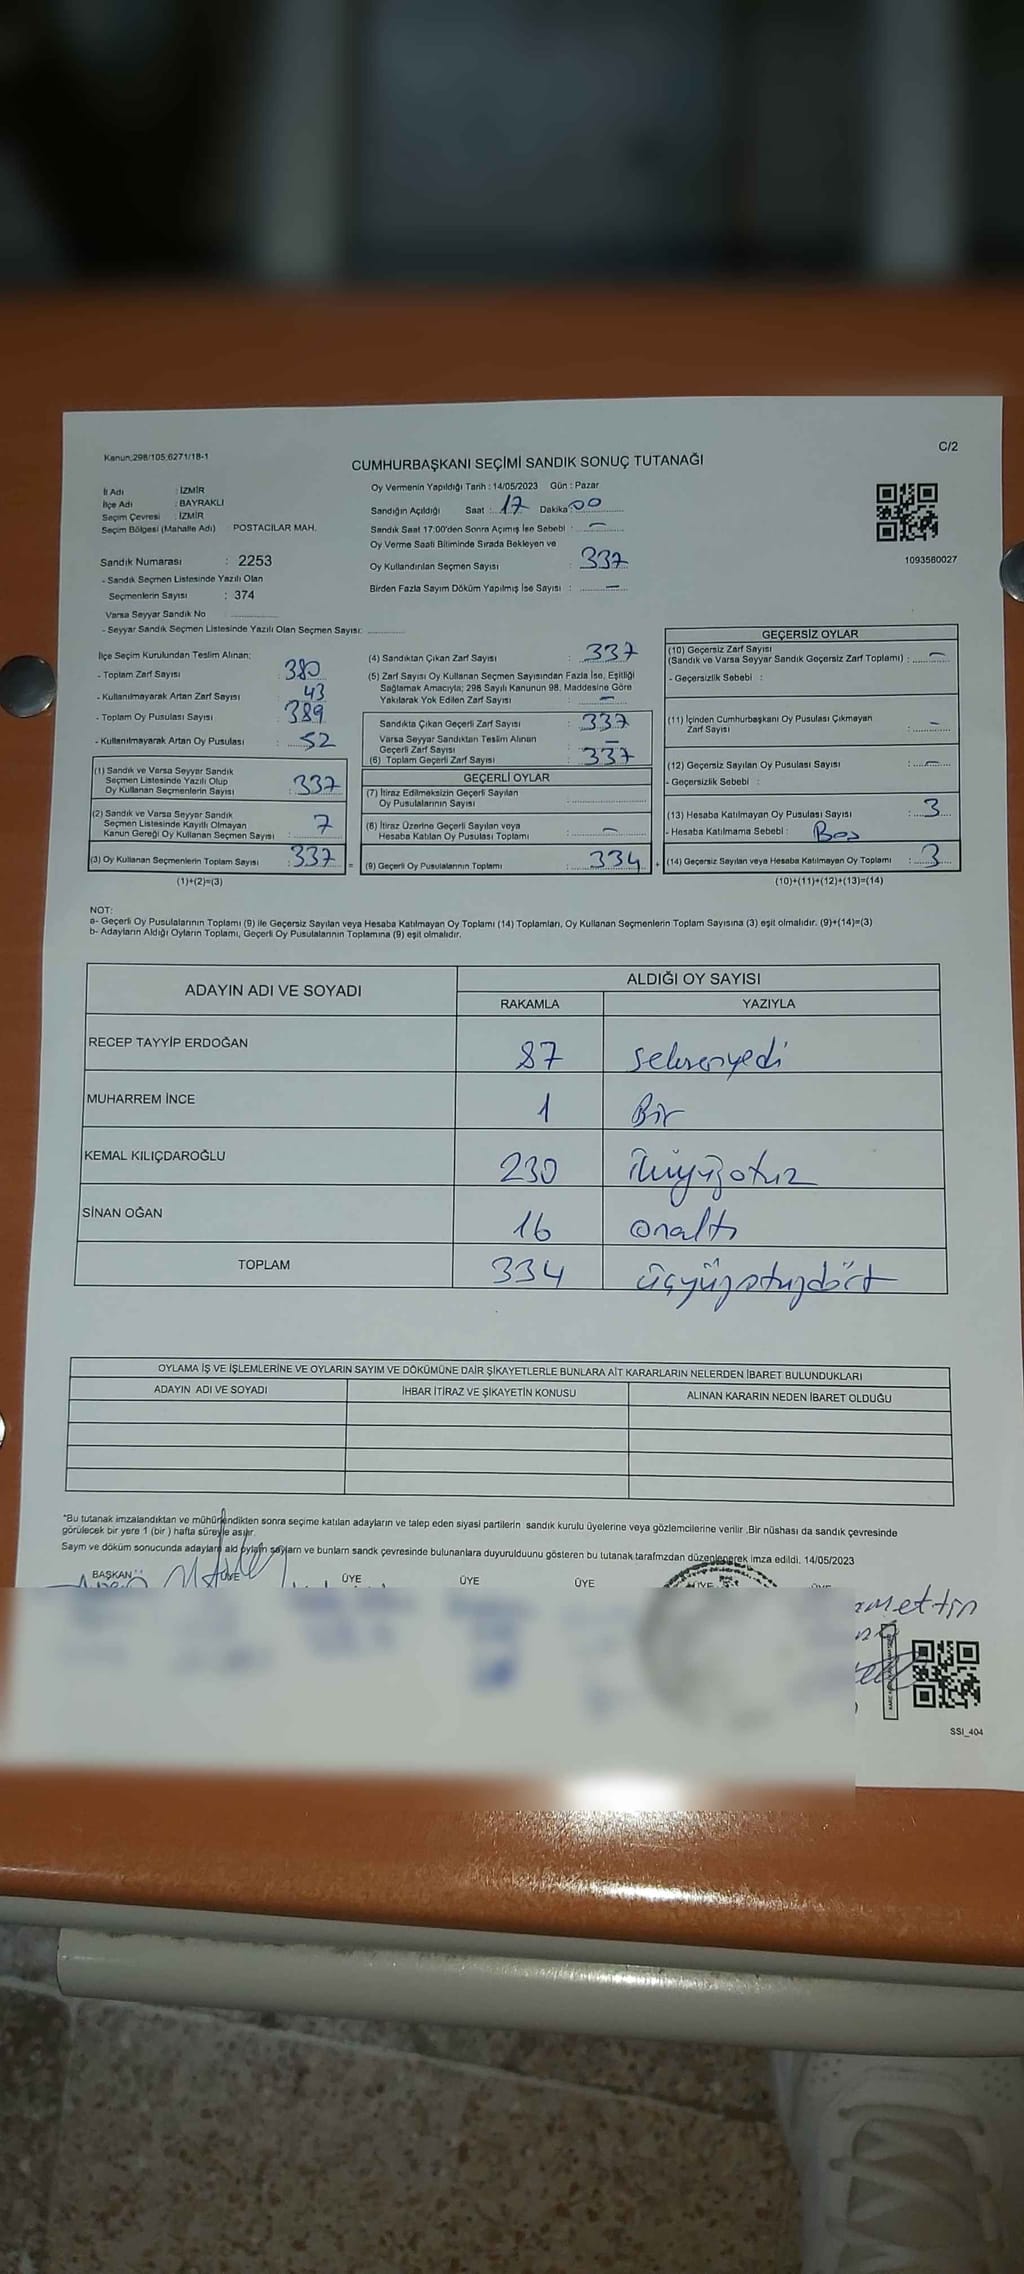 Kanun:298/105;6271/18-1
C/2
CUMHURBAŞKANI SEÇİMİ SANDIK SONUÇ TUTANAĞI
İl Adı : İZMİR
İlçe Adı : BAYRAKLI
Seçim Çevresi : İZMİR
Seçim Bölgesi (Mahalle Adı) POSTACILAR MAH.
Sandık Numarası : 2253
- Sandık Seçmen Listesinde Yazılı Olan
Seçmenlerin Sayısı : 374
Varsa Seyyar Sandık No :
- Seyyar Sandık Seçmen Listesinde Yazılı Olan Seçmen Sayısı:
Oy Vermenin Yapıldığı Tarih : 14/05/2023 Gün : Pazar
Sandığın Açıldığı Saat : 17 Dakika: 00
Sandık Saat 17:00'den Sonra Açımış İse Sebebi : –
Oy Verme Saati Bitiminde Sırada Bekleyen ve
Oy Kullandırılan Seçmen Sayısı : 337
Birden Fazla Sayım Döküm Yapılmış İse Sayısı : –
1093560027
İlçe Seçim Kurulundan Teslim Alınan:
- Toplam Zarf Sayısı : 380
- Kullanılmayarak Artan Zarf Sayısı : 43
- Toplam Oy Pusulası Sayısı : 389
- Kullanılmayarak Artan Oy Pusulası : 52
(1) Sandık ve Varsa Seyyar Sandık
Seçmen Listesinde Yazılı Olup
Oy Kullanan Seçmenlerin Sayısı : 337
(2) Sandık ve Varsa Seyyar Sandık
Seçmen Listesinde Kayıtlı Olmayan
Kanun Gereği Oy Kullanan Seçmen Sayısı : 7
(3) Oy Kullanan Seçmenlerin Toplam Sayısı : 337
(1)+(2)=(3)
(4) Sandıktan Çıkan Zarf Sayısı : 337
(5) Zarf Sayısı Oy Kullanan Seçmen Sayısından Fazla İse, Eşitliği
Sağlamak Amacıyla; 298 Sayılı Kanunun 98. Maddesine Göre
Yakılarak Yok Edilen Zarf Sayısı : –
Sandıkta Çıkan Geçerli Zarf Sayısı : 337
Varsa Seyyar Sandıktan Teslim Alınan
Geçerli Zarf Sayısı : –
(6) Toplam Geçerli Zarf Sayısı : 337
GEÇERLİ OYLAR
(7) İtiraz Edilmeksizin Geçerli Sayılan
Oy Pusulalarının Sayısı :
(8) İtiraz Üzerine Geçerli Sayılan veya
Hesaba Katılan Oy Pusulası Toplamı : –
= (9) Geçerli Oy Pusulalarının Toplamı : 334
GEÇERSİZ OYLAR
(10) Geçersiz Zarf Sayısı
(Sandık ve Varsa Seyyar Sandık Geçersiz Zarf Toplamı) : –
- Geçersizlik Sebebi :
(11) İçinden Cumhurbaşkanı Oy Pusulası Çıkmayan
Zarf Sayısı : –
(12) Geçersiz Sayılan Oy Pusulası Sayısı : –
- Geçersizlik Sebebi :
(13) Hesaba Katılmayan Oy Pusulası Sayısı : 3
- Hesaba Katılmama Sebebi : Boş
+ (14) Geçersiz Sayılan veya Hesaba Katılmayan Oy Toplamı : 3
(10)+(11)+(12)+(13)=(14)
NOT:
a- Geçerli Oy Pusulalarının Toplamı (9) ile Geçersiz Sayılan veya Hesaba Katılmayan Oy Toplamı (14) Toplamları, Oy Kullanan Seçmenlerin Toplam Sayısına (3) eşit olmalıdır. (9)+(14)=(3)
b- Adayların Aldığı Oyların Toplamı, Geçerli Oy Pusulalarının Toplamına (9) eşit olmalıdır.
ADAYIN ADI VE SOYADI ALDIĞI OY SAYISI
RAKAMLA YAZIYLA
RECEP TAYYİP ERDOĞAN 87 seksenyedi
MUHARREM İNCE 1 Bir
KEMAL KILIÇDAROĞLU 230 ikiyüzotuz
SİNAN OĞAN 16 onaltı
TOPLAM 334 üçyüzotuzdört
OYLAMA İŞ VE İŞLEMLERİNE VE OYLARIN SAYIM VE DÖKÜMÜNE DAİR ŞİKAYETLERLE BUNLARA AİT KARARLARIN NELERDEN İBARET BULUNDUKLARI
ADAYIN ADI VE SOYADI İHBAR İTİRAZ VE ŞİKAYETİN KONUSU ALINAN KARARIN NEDEN İBARET OLDUĞU
"Bu tutanak imzalandıktan ve mühürlendikten sonra seçime katılan adayların ve talep eden siyasi partilerin sandık kurulu üyelerine veya gözlemcilerine verilir .Bir nüshası da sandık çevresinde
görülecek bir yere 1 (bir ) hafta süreyle asılır.
Sayım ve döküm sonucunda adayların ald oyların sayların ve bunların sandk çevresinde bulunanlara duyurulduunu gösteren bu tutanak tarafmzdan düzenlenerek imza edildi. 14/05/2023
BAŞKAN ÜYE ÜYE ÜYE ÜYE ÜYE ÜYE
SSI_404